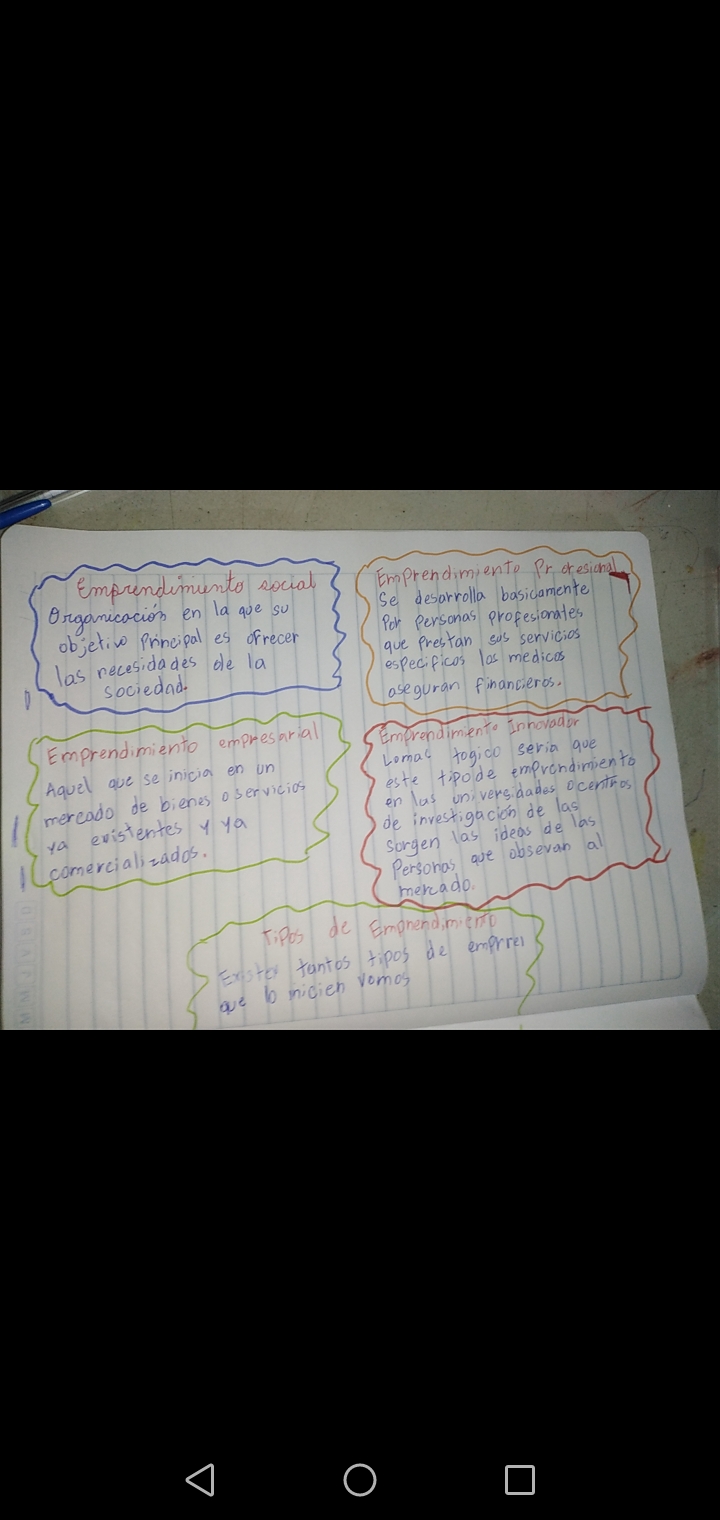 Emprendimiento social
Organicación en la que su
objetivo Principal es ofrecer
las necesidades de la
sociedad.
Emprendimiento Profesional
Se desarrolla basicamente
Por Personas profesionales
que Prestan sus servicios
especificos los medicos
aseguran financieros.
Emprendimiento empresarial
Aquel que se inicia en un
mercado de bienes o servicios
ya existentes y ya
comercializados.
Emprendimiento Innovador
Lomas logico seria que
este tipo de emprendimiento
en las universidades o centros
de investigación de las
Sorgen las ideas de las
Personas que obsevan al
mercado.
Tipos de Emprendimiento
Existen tantos tipos de
que lo inicien vemos